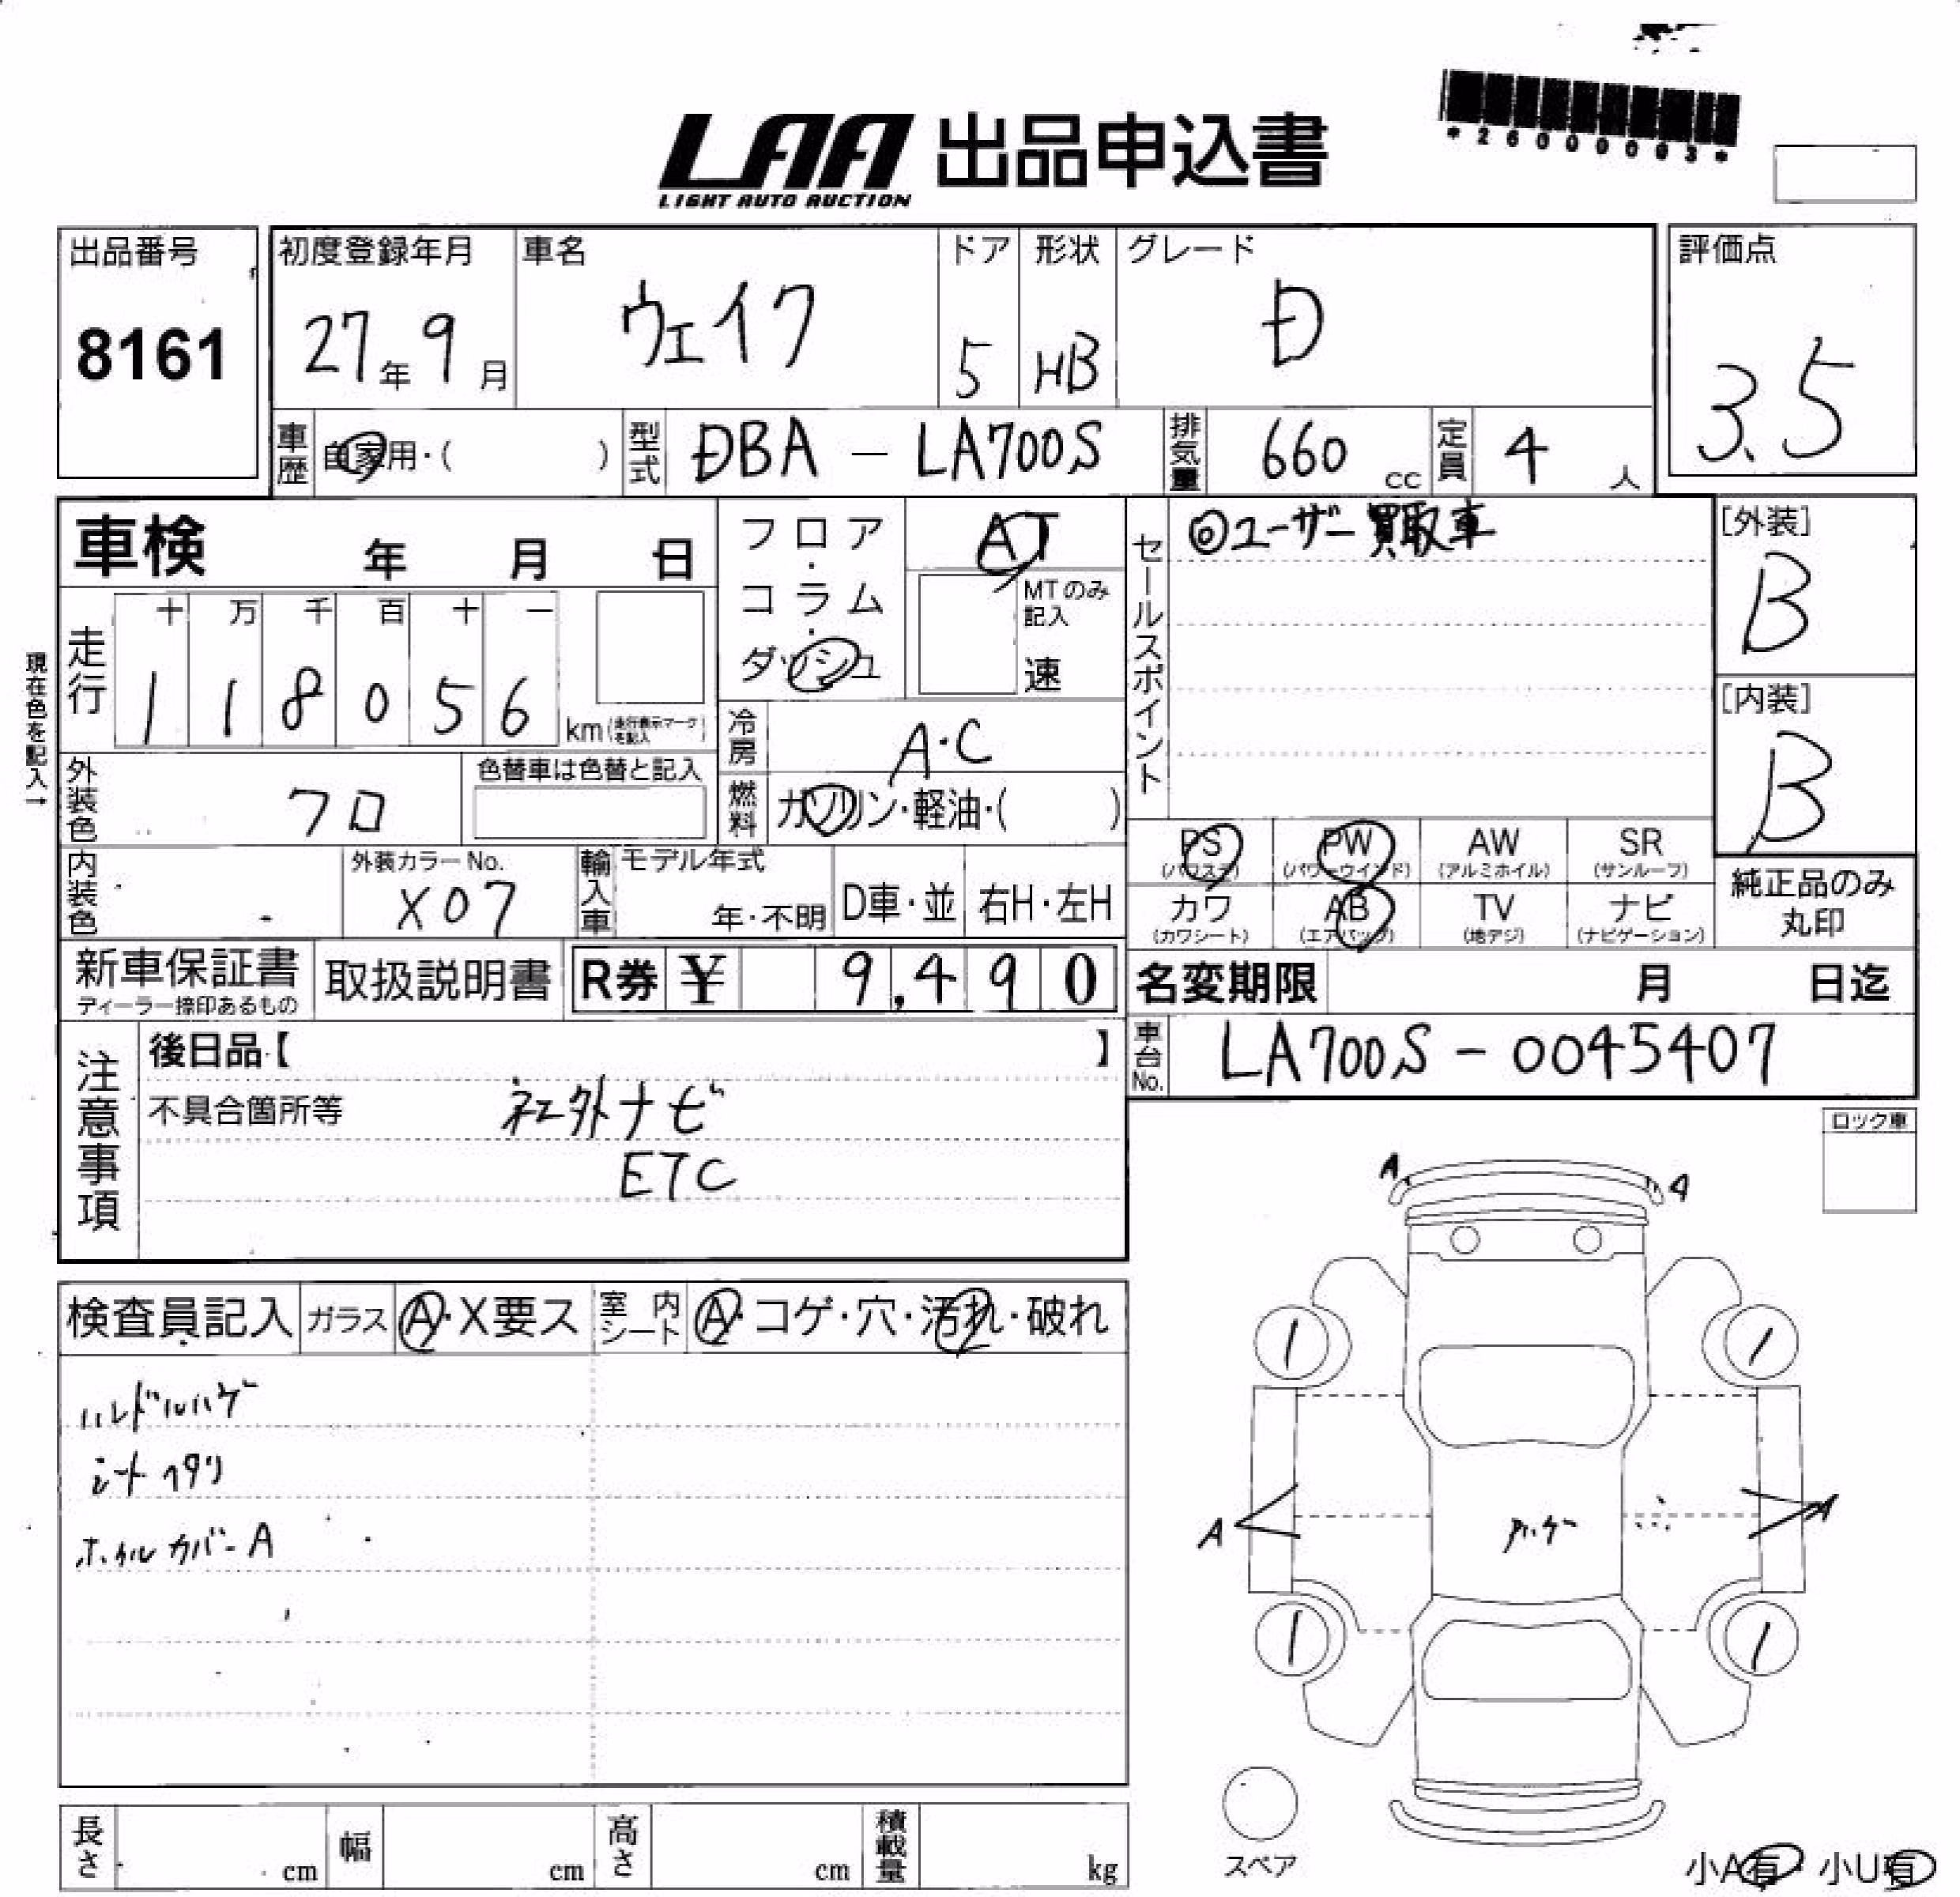 *26000003*
LAA 出品申込書
LIGHT AUTO AUCTION
出品番号 初度登録年月 車名 ドア 形状 グレード 評価点
8161 27年9月 ウェイク 5 HB D 3.5
車歴 自家用・( ) 型式 DBA - LA700S 排気量 660 cc 定員 4 人
車検 年 月 日 フロア・コラム・ダッシュ AT
MTのみ記入 速
セールスポイント ◎ユーザー買取車
[外装] B
現在色を記入→
走行 十 万 千 百 十 一
1 1 8 0 5 6 km (走行表示マークを記入)
[内装] B
冷房 A・C
外装色 クロ 色替車は色替と記入 燃料 ガソリン・軽油・( )
PS (パワステ) PW (パワーウインド) AW (アルミホイル) SR (サンルーフ)
内装色 外装カラーNo. X07 輸入車 モデル年式 年・不明 D車・並 右H・左H
カワ (カワシート) AB (エアバッグ) TV (地デジ) ナビ (ナビゲーション)
純正品のみ丸印
新車保証書 ディーラー捺印あるもの 取扱説明書 R券 ¥ 9,490 名変期限 月 日迄
注意事項 後日品【 】
車台No. LA700S - 0045407
不具合箇所等 社外ナビ
ETC
ロック車
A A
検査員記入 ガラス A・X要ス 室内シート A・コゲ・穴・汚れ・破れ
ハンドルハゲ
シートヘタリ
ホイルカバーA
A A
スペア
長さ cm 幅 cm 高さ cm 積載量 kg
小A有・小U有